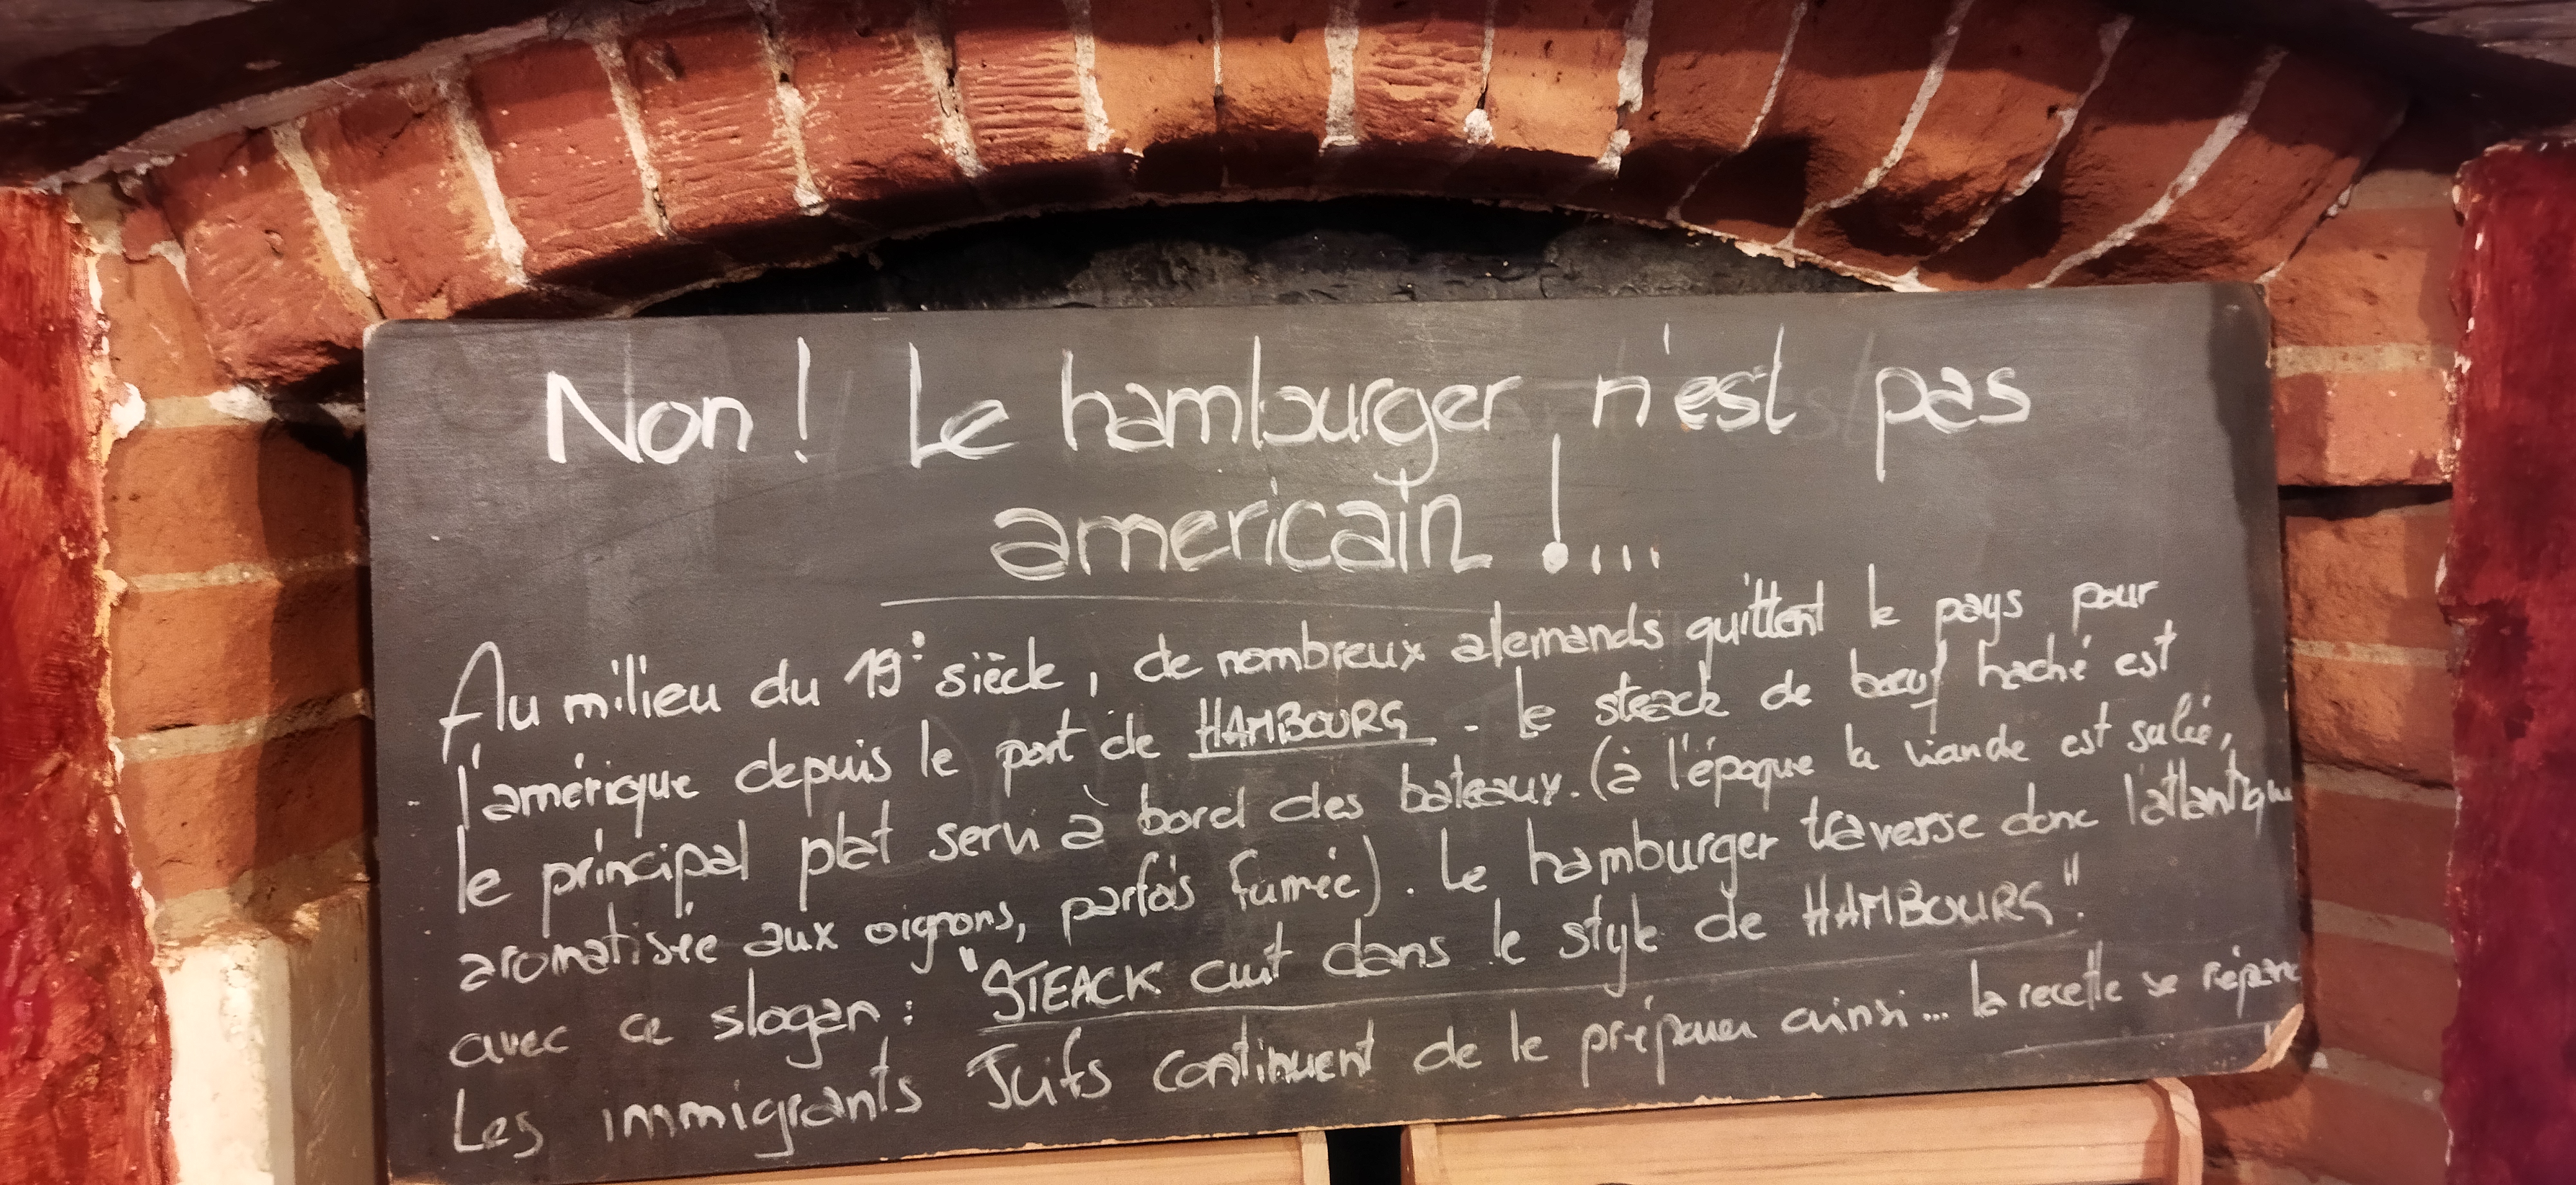 Non ! Le hamburger n'est pas
americain !...
Au milieu du 19e siècle, de nombreux alemands quittent le pays pour
l'amérique depuis le port de HAMBOURG - le steack de bœuf haché est
le principal plat servi à bord des bateaux. (à l'époque la viande est salée,
aromatisée aux oignons, parfois fumée). Le hamburger traverse donc l'atlantique
avec ce slogan : "STEACK cuit dans le style de HAMBOURG".
Les immigrants Juifs continuent de le préparer ainsi... la recette se répand